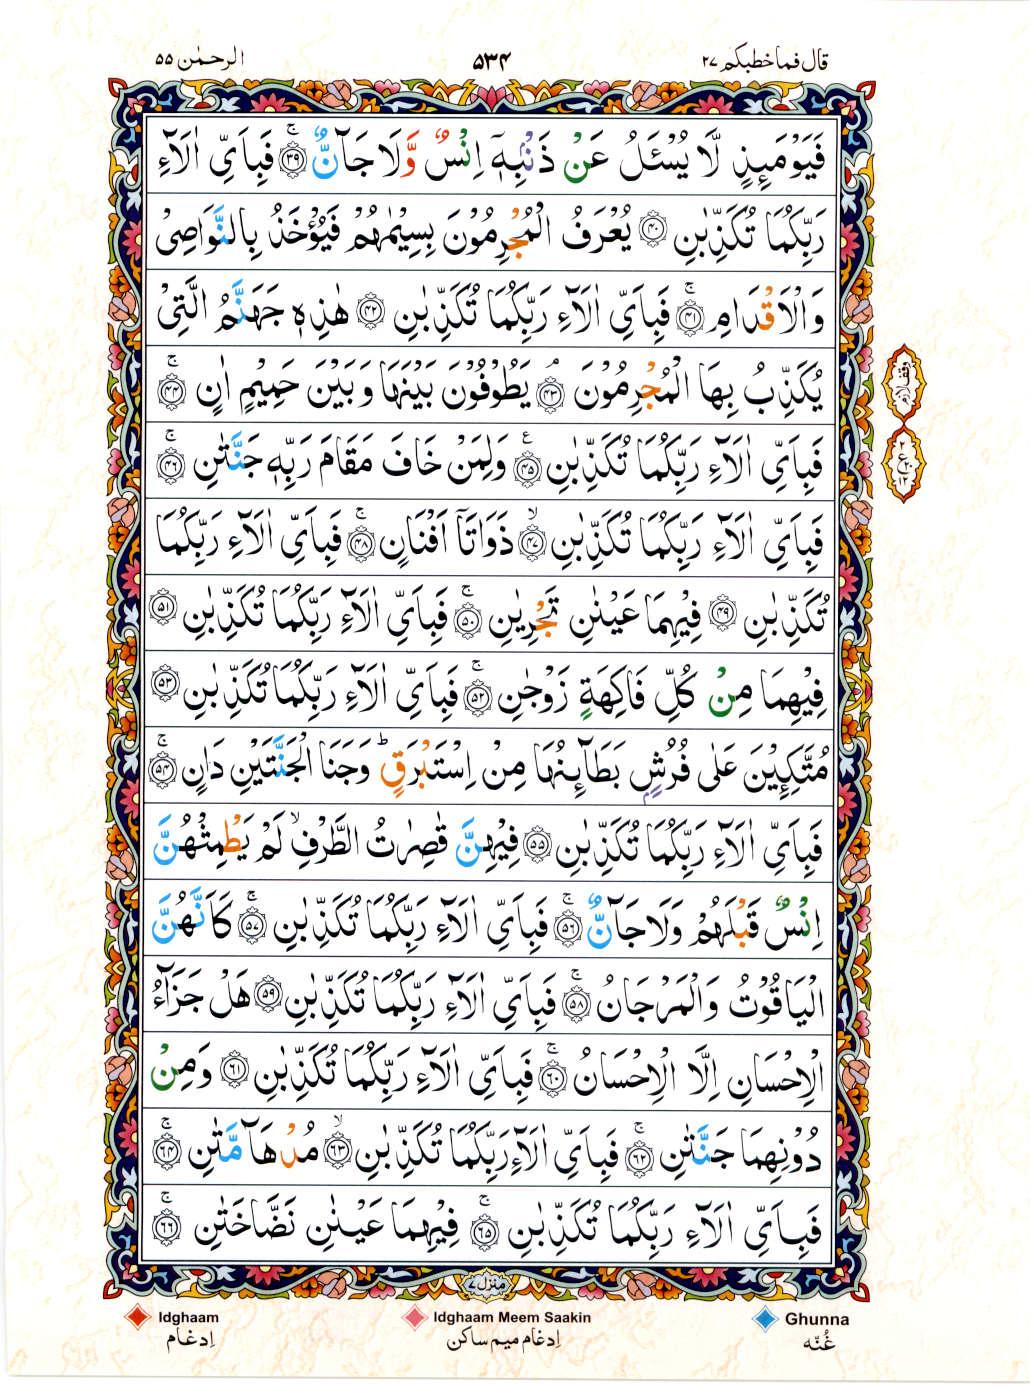 قال فما خطبكم ٢٧
۵۳۴
الرحمٰن ۵۵
فَيَوْمَىِٕذٍ لَّا يُسْـَٔلُ عَنْ ذَنْۢبِهٖۤ اِنْسٌ وَّلَا جَآنٌّ ۚ‏﴿۳۹﴾ فَبِاَىِّ اٰلَآءِ
رَبِّكُمَا تُكَذِّبٰنِ ﴿۴۰﴾ يُعْرَفُ الْمُجْرِمُوْنَ بِسِيْمٰهُمْ فَيُؤْخَذُ بِالنَّوَاصِىْ
وَالْاَقْدَامِ ۚ‏﴿۴۱﴾ فَبِاَىِّ اٰلَآءِ رَبِّكُمَا تُكَذِّبٰنِ ﴿۴۲﴾ هٰذِهٖ جَهَنَّمُ الَّتِىْ
يُكَذِّبُ بِهَا الْمُجْرِمُوْنَ ۘ‏﴿۴۳﴾ يَطُوْفُوْنَ بَيْنَهَا وَبَيْنَ حَمِيْمٍ اٰنٍ ۚ‏﴿۴۴﴾
فَبِاَىِّ اٰلَآءِ رَبِّكُمَا تُكَذِّبٰنِ ﴿۴۵﴾ ع وَلِمَنْ خَافَ مَقَامَ رَبِّهٖ جَنَّتٰنِ ۚ‏﴿۴۶﴾
فَبِاَىِّ اٰلَآءِ رَبِّكُمَا تُكَذِّبٰنِ ۙ‏﴿۴۷﴾ ذَوَاتَاۤ اَفْنَانٍ ۚ‏﴿۴۸﴾ فَبِاَىِّ اٰلَآءِ رَبِّكُمَا
تُكَذِّبٰنِ ﴿۴۹﴾ فِيْهِمَا عَيْنٰنِ تَجْرِيٰنِ ۚ‏﴿۵۰﴾ فَبِاَىِّ اٰلَآءِ رَبِّكُمَا تُكَذِّبٰنِ ﴿۵۱﴾
فِيْهِمَا مِنْ كُلِّ فَاكِهَةٍ زَوْجٰنِ ۚ‏﴿۵۲﴾ فَبِاَىِّ اٰلَآءِ رَبِّكُمَا تُكَذِّبٰنِ ﴿۵۳﴾
مُتَّكِـِٕيْنَ عَلٰى فُرُشٍۢ بَطَآىِٕنُهَا مِنْ اِسْتَبْرَقٍ ؕ وَجَنَا الْجَنَّتَيْنِ دَانٍ ۚ‏﴿۵۴﴾
فَبِاَىِّ اٰلَآءِ رَبِّكُمَا تُكَذِّبٰنِ ﴿۵۵﴾ فِيْهِنَّ قٰصِرٰتُ الطَّرْفِ ۙ لَمْ يَطْمِثْهُنَّ
اِنْسٌ قَبْلَهُمْ وَلَا جَآنٌّ ۚ‏﴿۵۶﴾ فَبِاَىِّ اٰلَآءِ رَبِّكُمَا تُكَذِّبٰنِ ۚ‏﴿۵۷﴾ كَاَنَّهُنَّ
الْيَاقُوْتُ وَالْمَرْجَانُ ۚ‏﴿۵۸﴾ فَبِاَىِّ اٰلَآءِ رَبِّكُمَا تُكَذِّبٰنِ ﴿۵۹﴾ هَلْ جَزَآءُ
الْاِحْسَانِ اِلَّا الْاِحْسَانُ ۚ‏﴿۶۰﴾ فَبِاَىِّ اٰلَآءِ رَبِّكُمَا تُكَذِّبٰنِ ﴿۶۱﴾ وَمِنْ
دُوْنِهِمَا جَنَّتٰنِ ۚ‏﴿۶۲﴾ فَبِاَىِّ اٰلَآءِ رَبِّكُمَا تُكَذِّبٰنِ ۙ‏﴿۶۳﴾ مُدْهَآمَّتٰنِ ۚ‏﴿۶۴﴾
فَبِاَىِّ اٰلَآءِ رَبِّكُمَا تُكَذِّبٰنِ ۚ‏﴿۶۵﴾ فِيْهِمَا عَيْنٰنِ نَضَّاخَتٰنِ ۚ‏﴿۶۶﴾
منزل ٧
Idghaam
Idghaam Meem Saakin
Ghunna
اِدغام
اِدغام میم ساکن
غُنّه